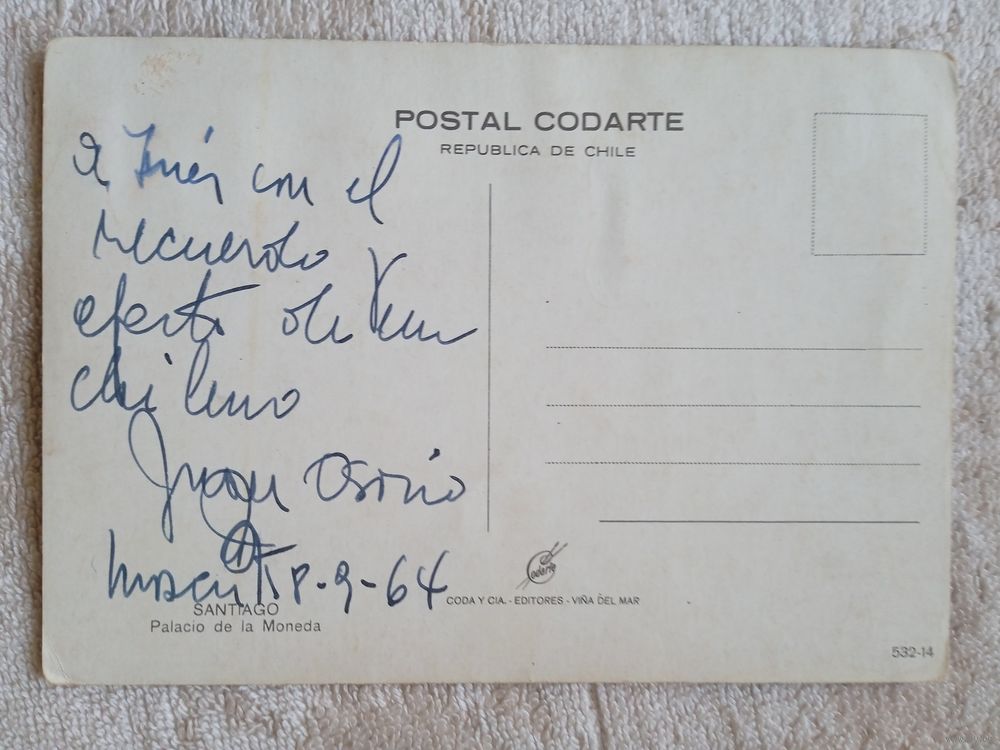 POSTAL CODARTE
REPUBLICA DE CHILE
a Inés con el
recuerdo
afecto de un
chileno
Juan Osorio
18-9-64
SANTIAGO
Palacio de la Moneda
Codarte
CODA Y CIA. - EDITORES - VIÑA DEL MAR
532-14